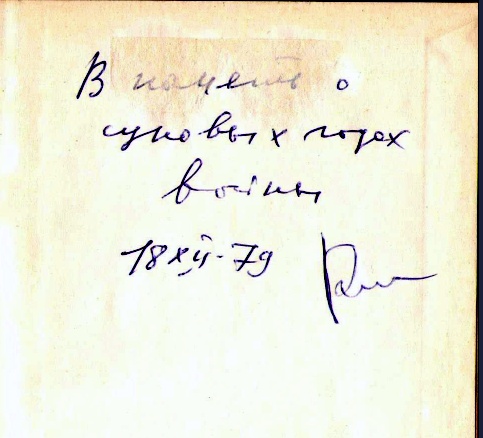 В память о
суровых годах
войны
18 XII-79